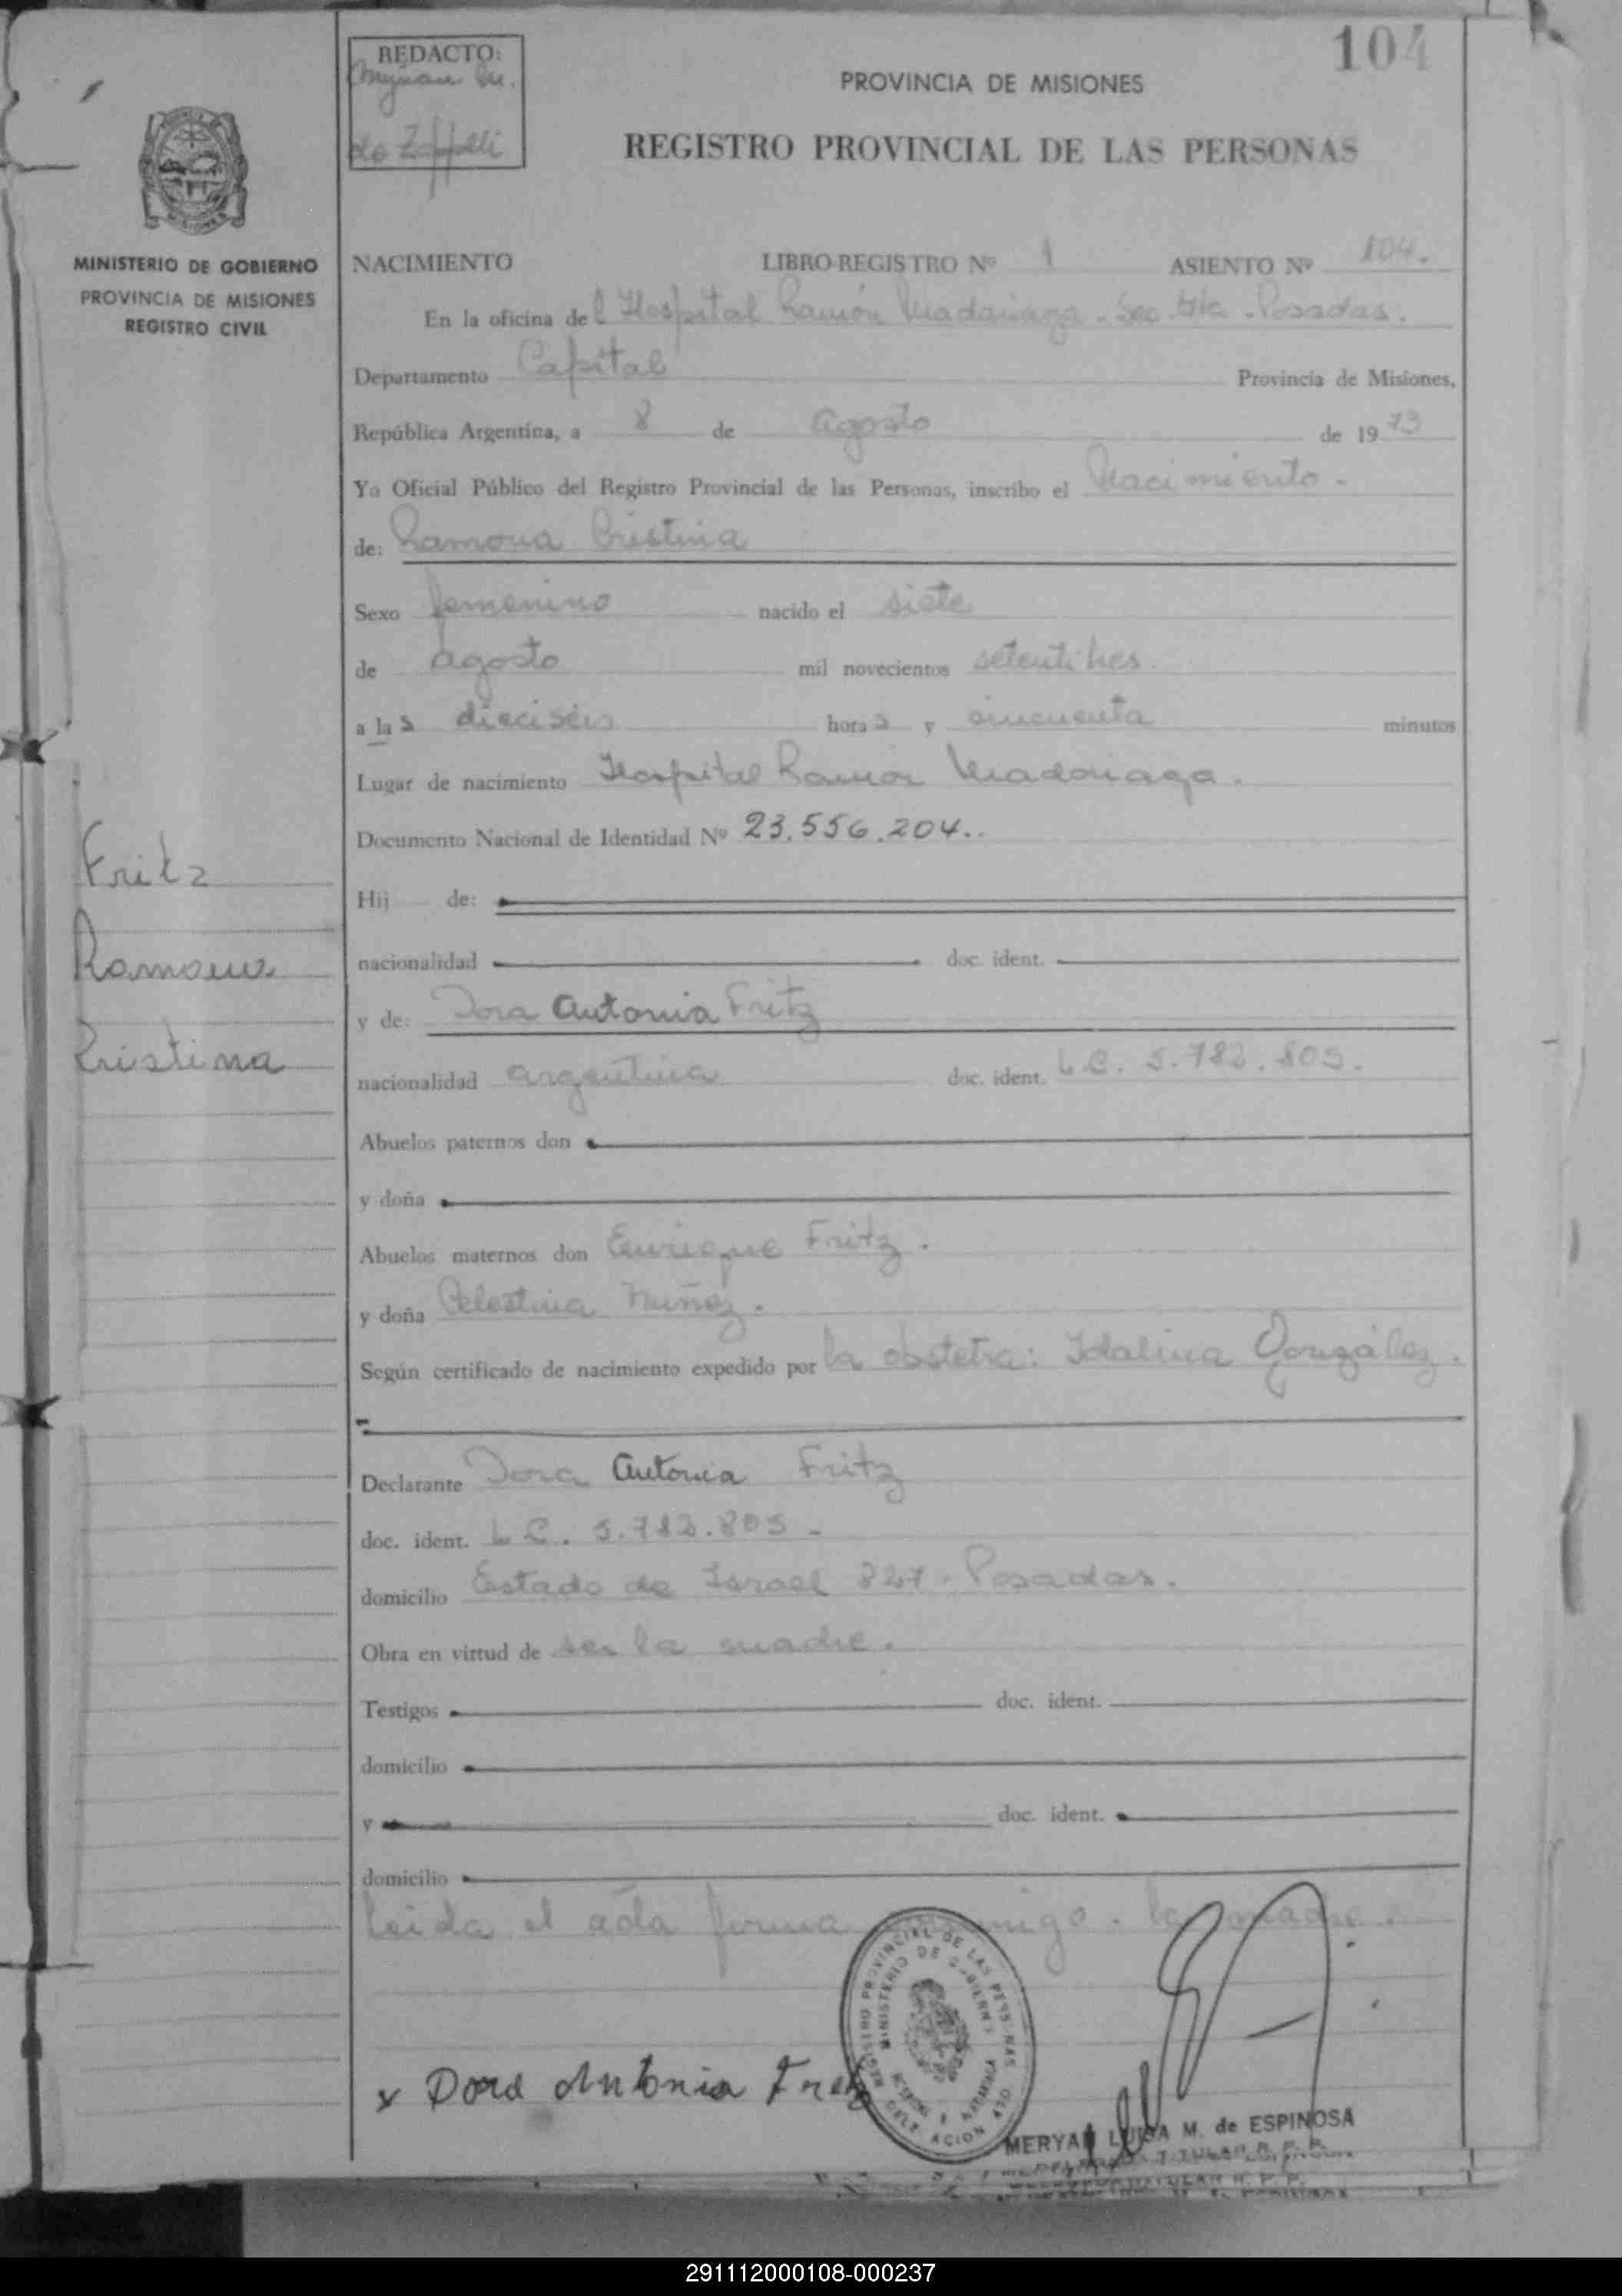 104
REDACTO:
de Zappelli
PROVINCIA DE MISIONES
REGISTRO PROVINCIAL DE LAS PERSONAS
MINISTERIO DE GOBIERNO
PROVINCIA DE MISIONES
REGISTRO CIVIL
NACIMIENTO LIBRO-REGISTRO Nº 1 ASIENTO Nº 104.
En la oficina del Hospital Ramón Madariaga - Sec. 4ta - Posadas.
Departamento Capital Provincia de Misiones,
República Argentina, a 8 de agosto de 1973
Yo Oficial Público del Registro Provincial de las Personas, inscribo el Nacimiento -
de: Ramona Cristina
Sexo femenino nacido el siete
de agosto mil novecientos setentitres.
a las dieciseis horas y cincuenta minutos
Lugar de nacimiento Hospital Ramón Madariaga.
Documento Nacional de Identidad Nº 23.556.204..
Hij de:
nacionalidad doc. ident.
y de: Dora Antonia Fritz
nacionalidad argentina doc. ident. L.C. 5.782.805.
Abuelos paternos don
y doña
Abuelos maternos don Enrique Fritz.
y doña Celestina Núñez.
Según certificado de nacimiento expedido por la obstetra: Idalina González.
Declarante Dora Antonia Fritz
doc. ident. L.C. 5.782.805 -
domicilio Estado de Israel 827 - Posadas.
Obra en virtud de ser la madre.
Testigos doc. ident.
domicilio
y doc. ident.
domicilio
Leida el acta firma conmigo - la madre.
Fritz
Ramona
Cristina
x Dora Antonia Fritz
REGISTRO PROVINCIAL DE LAS PERSONAS
MINISTERIO DE GOBIERNO
MERYAN LUISA M. de ESPINOSA
TITULAR R. P. P.
291112000108-000237